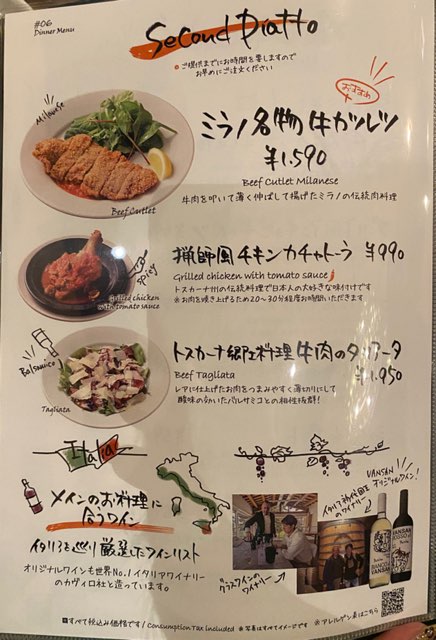 #06
Dinner Menu
Second Piatto
●ご提供までにお時間を要しますので
お早めにご注文ください
Milanese
おすすめ
ミラノ名物 牛カツレツ
¥1,590
Beef Cutlet Milanese
牛肉を叩いて薄く伸ばして揚げたミラノの伝統肉料理
Beef Cutlet
猟師風チキンカチャトーラ ¥990
Grilled chicken with tomato sauce
トスカーナ州の伝統料理で日本人の大好きな味付けです
※お肉を焼き上げるため20～30分程度お時間いただきます
spicy
Grilled chicken
with tomato sauce
トスカーナ郷土料理 牛肉のタリアータ
¥1,950
Beef Tagliata
レアに仕上げたお肉をつまみやすく薄切りにして
酸味の効いたバルサミコとの相性抜群!
Balsamico
Tagliata
Italia
メインのお料理に
合うワイン
イタリアを巡り厳選したワインリスト
オリジナルワインも世界No.1イタリアワイナリー
のカヴィロ社と造っています。
イタリア
のワイナリー
VANSAN
オリジナルワイン!
ワイナリー
VANSAN
BIANCO
VANSAN
■すべて税込み価格です / Consumption Tax included ※写真はすべてイメージです
※アレルゲン表はこちら